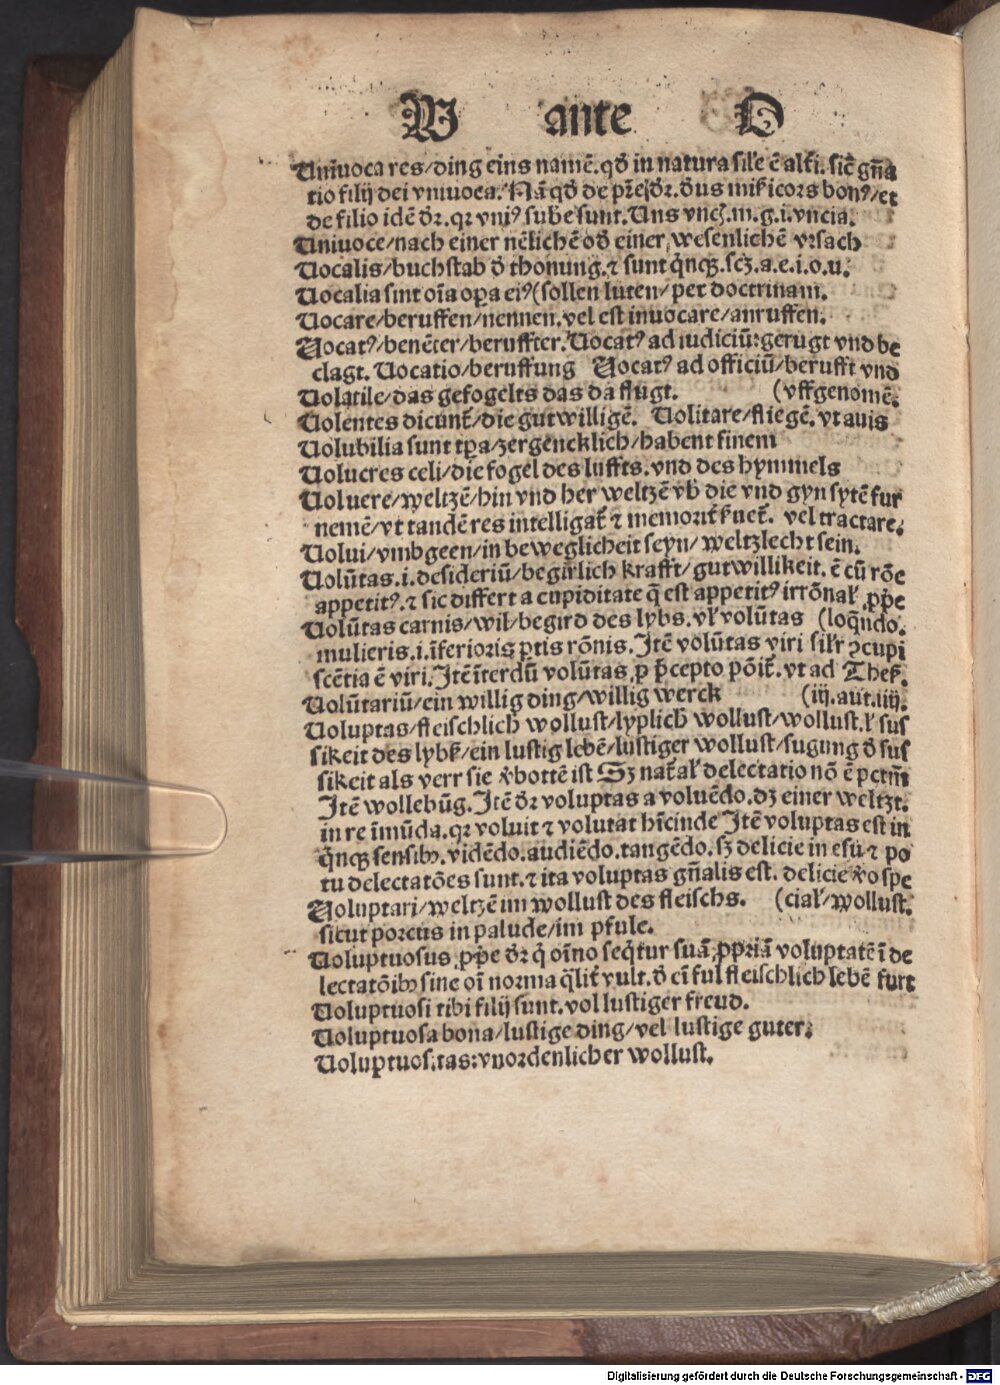 V ante O
Uniuoca res/ding eins namē.qđ in natura siľe ē alťi.sič gña
tio filij dei vniuoca. Nā qđ de prē đr.đus miẜicors bonꝰ/et
de filio idē đr.qr vniꝰ sube sunt.Uns vncꝫ.m.g.i.vncia.
Uniuoce/nach einer nēlichē ođ einer wesenlichē vrsach
Uocalis/buchstab đ thonung.⁊ sunt q̇nqꝫ.scꝫ.a.e.i.o.u.
Uocalia sint oīa oꝑa eiꝰ(sollen luten/per doctrinam.
Uocare/beruffen/nennen.vel est inuocare/anruffen.
Uocatꝰ/benēter/beruffter.Uocatꝰ ad iudiciū:gerugt vnd be
clagt. Uocatio/beruffung Uocatꝰ ad officiū/berufft vnd
Uolatile/das gefogelts das da flugt. (vffgenomē.
Uolentes dicunť/die gutwilligē. Uolitare/fliegē.vt auis
Uolubilia sunt tꝑa/zergencklich/habent finem
Uolucres celi/die fogel des luffts.vnd des hymmels
Uoluere/weltzē/hin vnd her weltzē vb̄ die vnd gyn sytē fur
nemē/vt tandē res intelligať ⁊ memoriť. vel tractare.
Uolui/vmbgeen/in beweglicheit seyn/weltzlecht sein.
Uolūtas.i.desideriū/begirlich krafft/gutwillikeit.ē cū rōe
appetitꝰ.⁊ sic differt a cupiditate q̄ est appetitꝰ irrōnaľ ꝓṗe
Uolūtas carnis/wil/begird des lybs.vľ volūtas (loq̄ndo.
mulieris.i.īferioris ꝑtis rōnis.Itē volūtas viri siľr ꝯcupi
scētia ē viri.Itē īterdū volūtas ꝓ p̄cepto pōiť.vt ad Theẜ.
Uolūtariū/ein willig ding/willig werck (iij.aut.iiij.
Uoluptas/fleischlich wollust/lyplich wollust/wollust.ľ sus
sikeit des lybẜ/ein lustig lebē/lustiger wollust/sugung đ sus
sikeit als verr sie v̌bottē ist Sꝫ naťaľ delectatio nō ē pctm̄
Itē wollebūg.Itē đr voluptas a voluēdo.dꝫ einer weltzt.
in re īmūda.qr voluit ⁊ volutat hīcinde Itē voluptas est in
q̇nqꝫ sensibꝫ.vidēdo.audiēdo.tangēdo.sꝫ delicie in esu ⁊ po
tu delectatōes sunt.⁊ ita voluptas gñalis est. delicie v̌o spe
Uoluptari/weltzē im wollust des fleischs. (ciaľ/wollust.
sicut porcus in palude/im pfule.
Uoluptuosus ꝓṗe đr q̇ oīno seq̄tur suā ꝓpriā voluptatē ī de
lectatōibꝫ sine oī norma q̄liť vult.đ ein ful fleischlich lebē furt
Uoluptuosi tibi filij sunt.vol lustiger freud.
Uoluptuosa bona/lustige ding/vel lustige guter.
Uoluptuos.tas:vnordenlicher wollust.
Digitalisierung gefördert durch die Deutsche Forschungsgemeinschaft - DFG